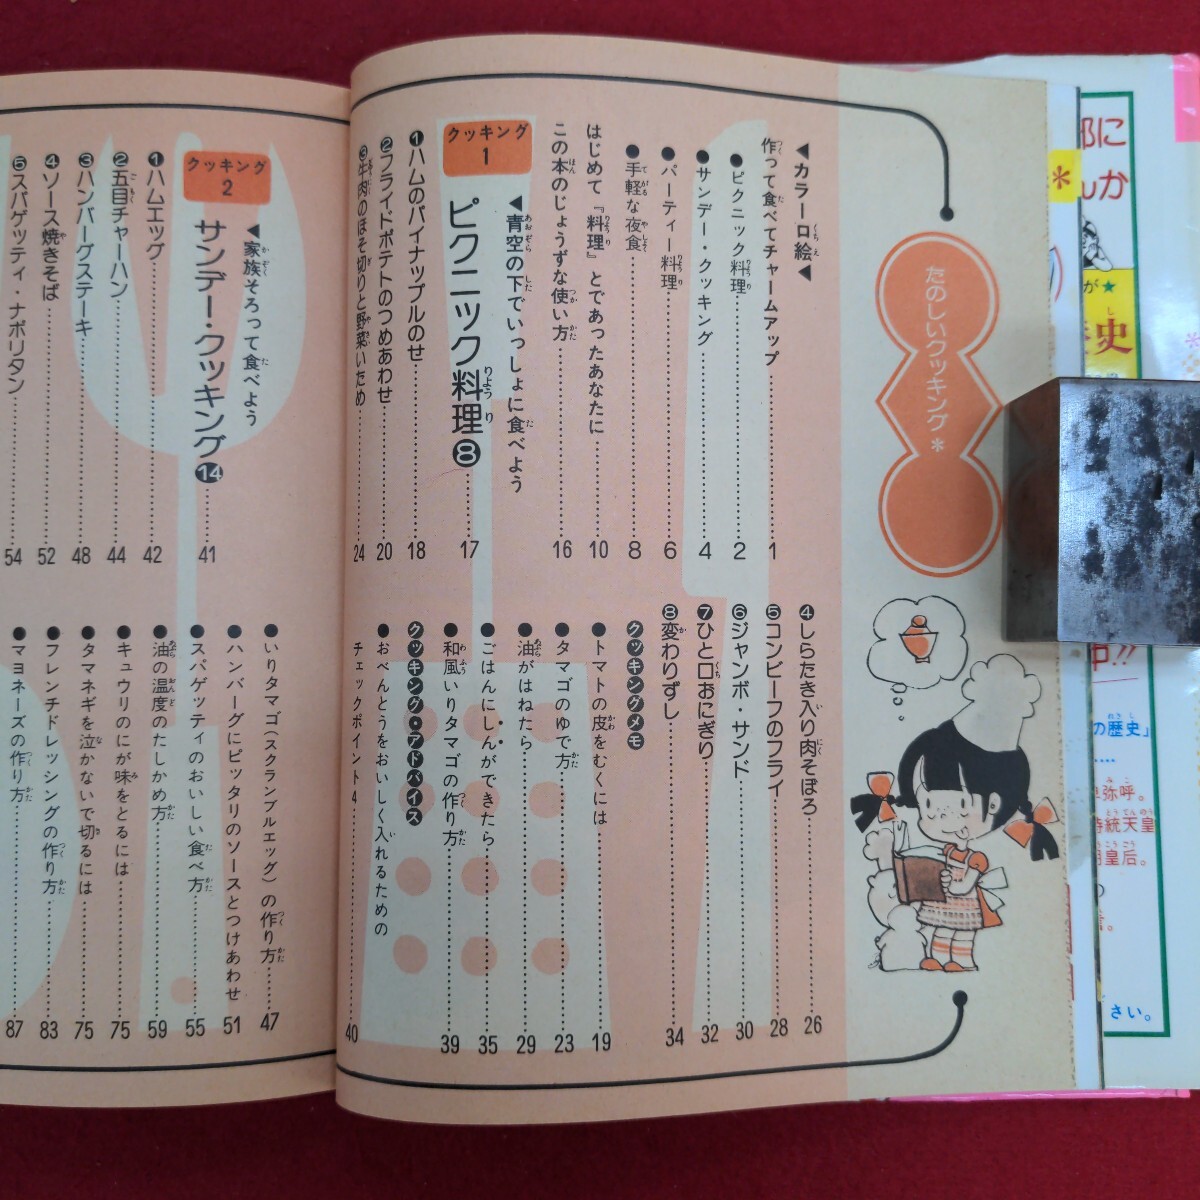 たのしいクッキング＊
◀カラー口絵◀
作って食べてチャームアップ……1
●ピクニック料理……2
●サンデー・クッキング……4
●パーティー料理……6
●手軽な夜食……8
はじめて『料理』とであったあなたに……10
この本のじょうずな使い方……16
クッキング1
◀青空の下でいっしょに食べよう
ピクニック料理❽……17
❶ハムのパイナップルのせ……18
❷フライドポテトのつめあわせ……20
❸牛肉のほそ切りと野菜いため……24
❹しらたき入り肉そぼろ……26
❺コンビーフのフライ……28
❻ジャンボ・サンド……30
❼ひと口おにぎり……32
❽変わりずし……34
クッキングメモ
●トマトの皮をむくには……19
●タマゴのゆで方……23
●油がはねたら……29
●ごはんにしんができたら……35
●和風いりタマゴの作り方……39
クッキング・アドバイス
●おべんとうをおいしく入れるための
チェックポイント4……40
クッキング2
◀家族そろって食べよう
サンデー・クッキング⓮……41
❶ハムエッグ……42
❷五目チャーハン……44
❸ハンバーグステーキ……48
❹ソース焼きそば……52
❺スパゲッティ・ナポリタン……54
●いりタマゴ(スクランブルエッグ)の作り方……47
●ハンバーグにピッタリのソースとつけあわせ……51
●スパゲッティのおいしい食べ方……55
●油の温度のたしかめ方……59
●キュウリのにが味をとるには……75
●タマネギを泣かないで切るには……75
●フレンチドレッシングの作り方……83
●マヨネーズの作り方……87
に
か
が★
史
中!!
の歴史」
卑弥呼。
持統天皇
皇后。
の
さい。